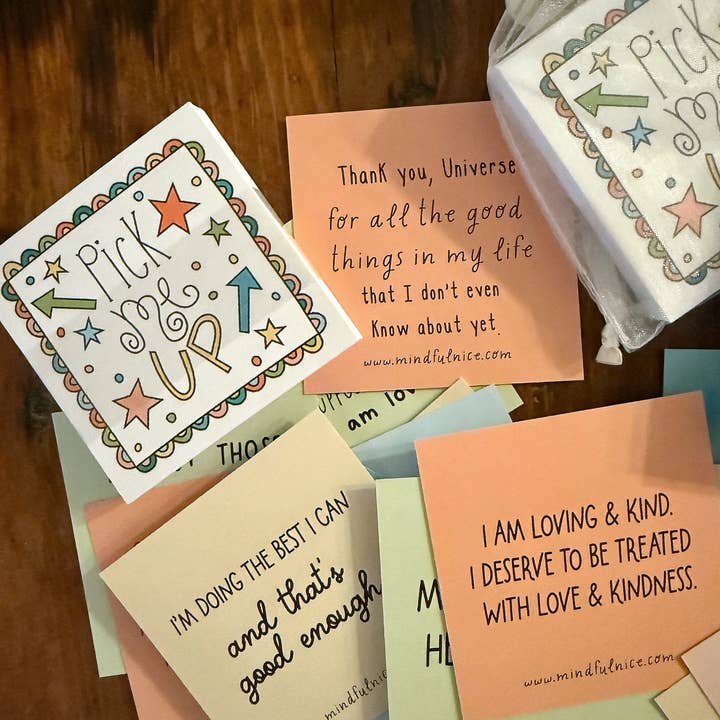 Pick
me
UP
Thank you, Universe
for all the good
things in my life
that I don't even
know about yet.
www.mindfulnice.com
Pick
me
am
THOS
I'M DOING THE BEST I CAN
and that's
good enough
mindfulnice
M
I AM LOVING & KIND.
I DESERVE TO BE TREATED
WITH LOVE & KINDNESS.
www.mindfulnice.com